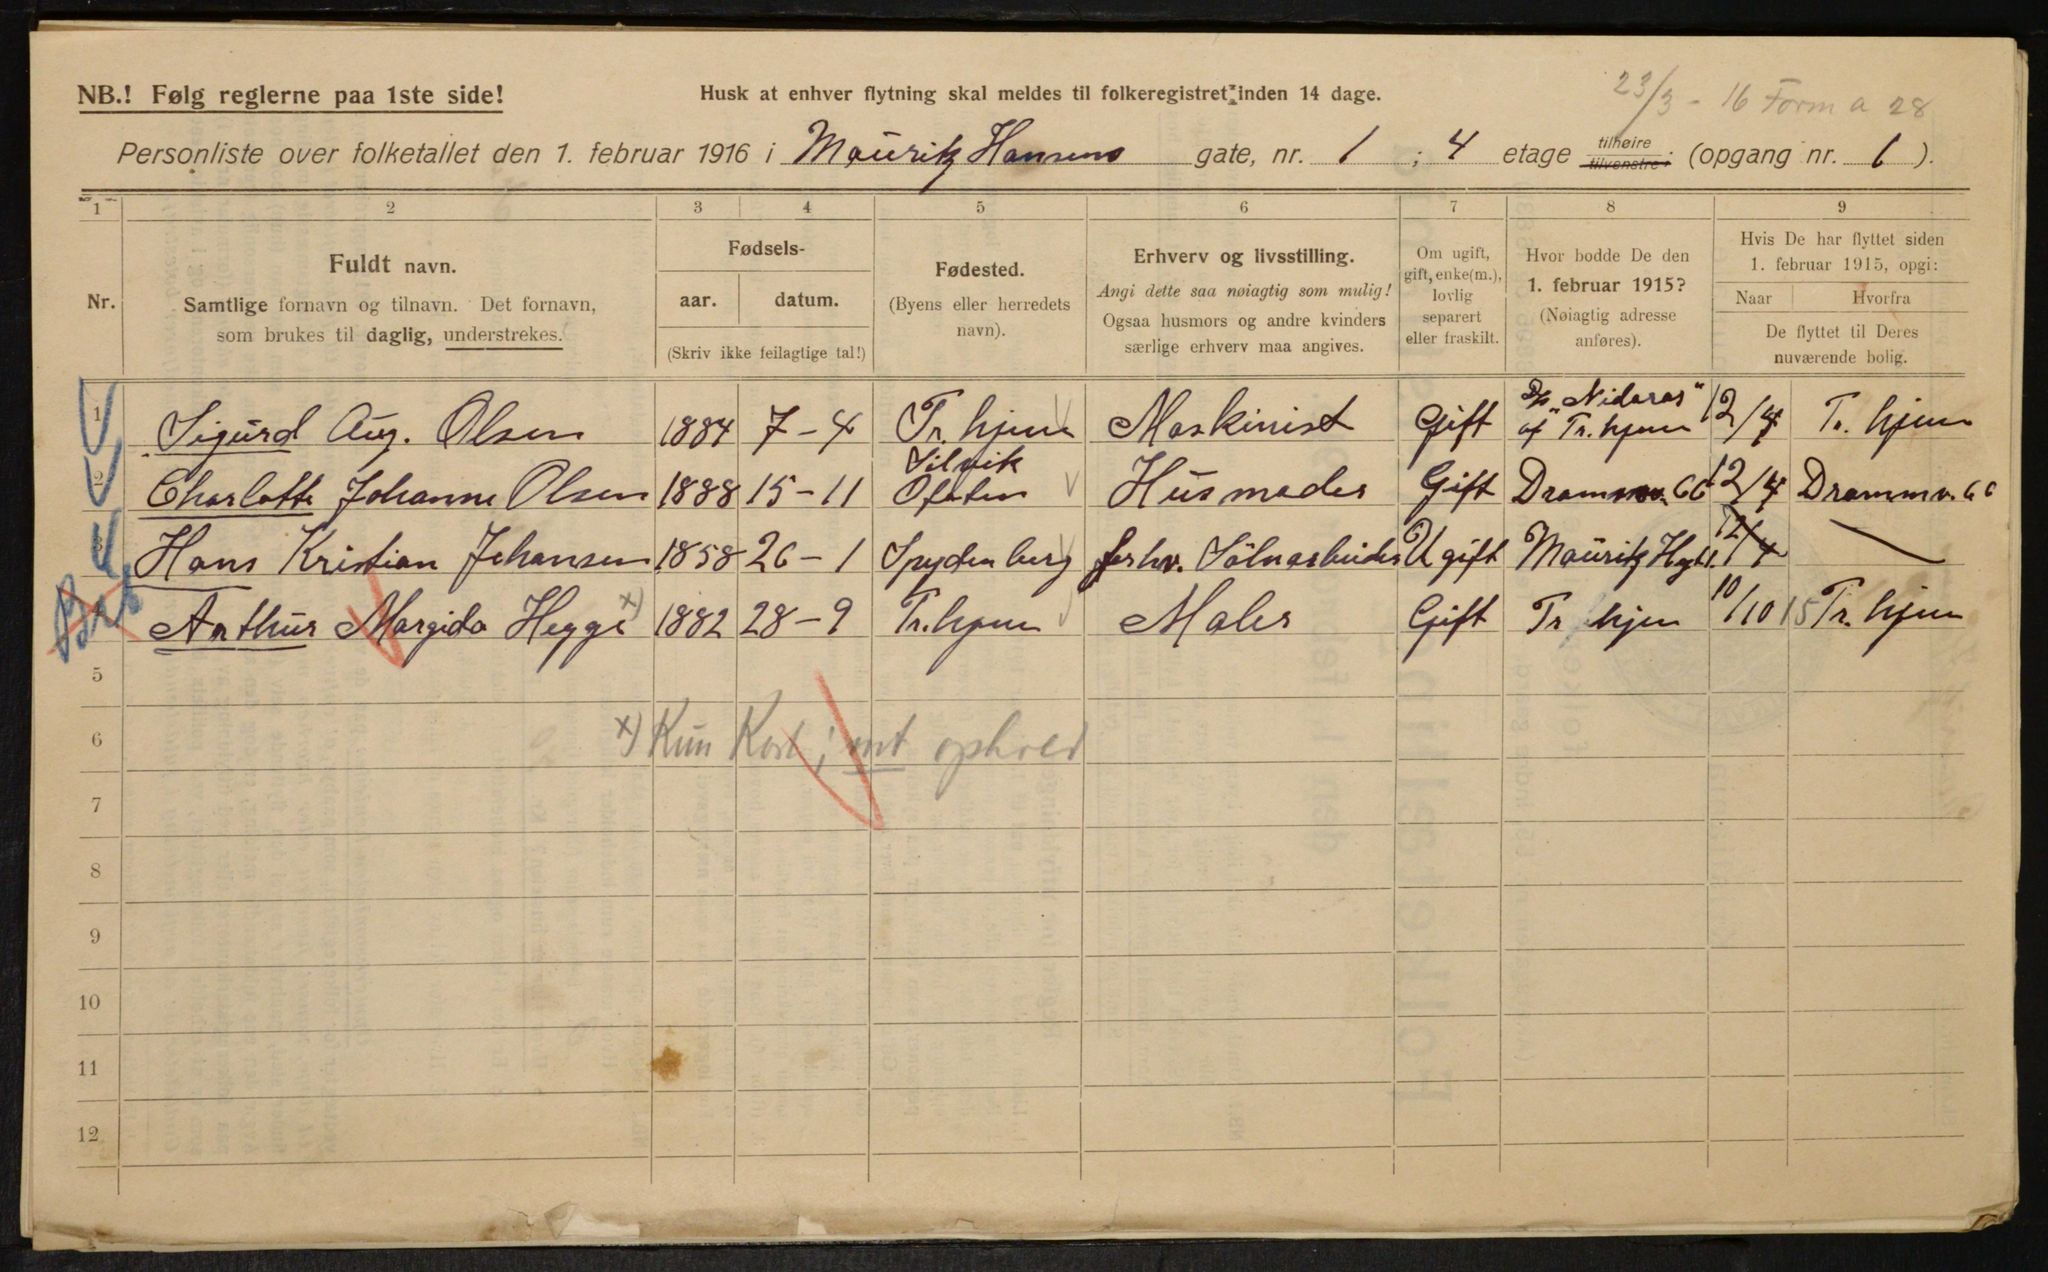 23/3 - 16 Form a 28
NB.! Følg reglerne paa 1ste side!
Husk at enhver flytning skal meldes til folkeregistret inden 14 dage.
Personliste over folketallet den 1. februar 1916 i Mauritz Hansens gate, nr. 1 ; 4 etage tilhøire tilvenstre; (opgang nr. 1 ).
1 2 3 4 5 6 7 8 9
Nr.
Fuldt navn.
Samtlige fornavn og tilnavn. Det fornavn,
som brukes til daglig, understrekes.
Fødsels-
aar. datum.
(Skriv ikke feilagtige tal!)
Fødested.
(Byens eller herredets
navn).
Erhverv og livsstilling.
Angi dette saa nøiagtig som mulig!
Ogsaa husmors og andre kvinders
særlige erhverv maa angives.
Om ugift,
gift, enke(m.),
lovlig
separert
eller fraskilt.
Hvor bodde De den
1. februar 1915?
(Nøiagtig adresse
anføres).
Hvis De har flyttet siden
1. februar 1915, opgi:
Naar Hvorfra
De flyttet til Deres
nuværende bolig.
1 Sigurd Aug. Olsen 1884 7-4 Tr.hjem Maskinist Gift "Nidaros" af Tr.hjem 12/4 Tr. hjem
2 Charlotte Johanne Olsen 1888 15-11 Ofoten Husmoder Gift Drammv. 66 12/4 Drammv. 66
3 Hans Kristian Johansen 1858 26-1 Spydenberg forhv. Ugift Mauritz 12/4 —
Arthur Margido Hegge x) 1882 28-9 Tr.hjem Maler Gift Tr hjem 10/10 15 Tr. hjem
5
6 x) Kun Kost; ophold
7
8
9
10
11
12